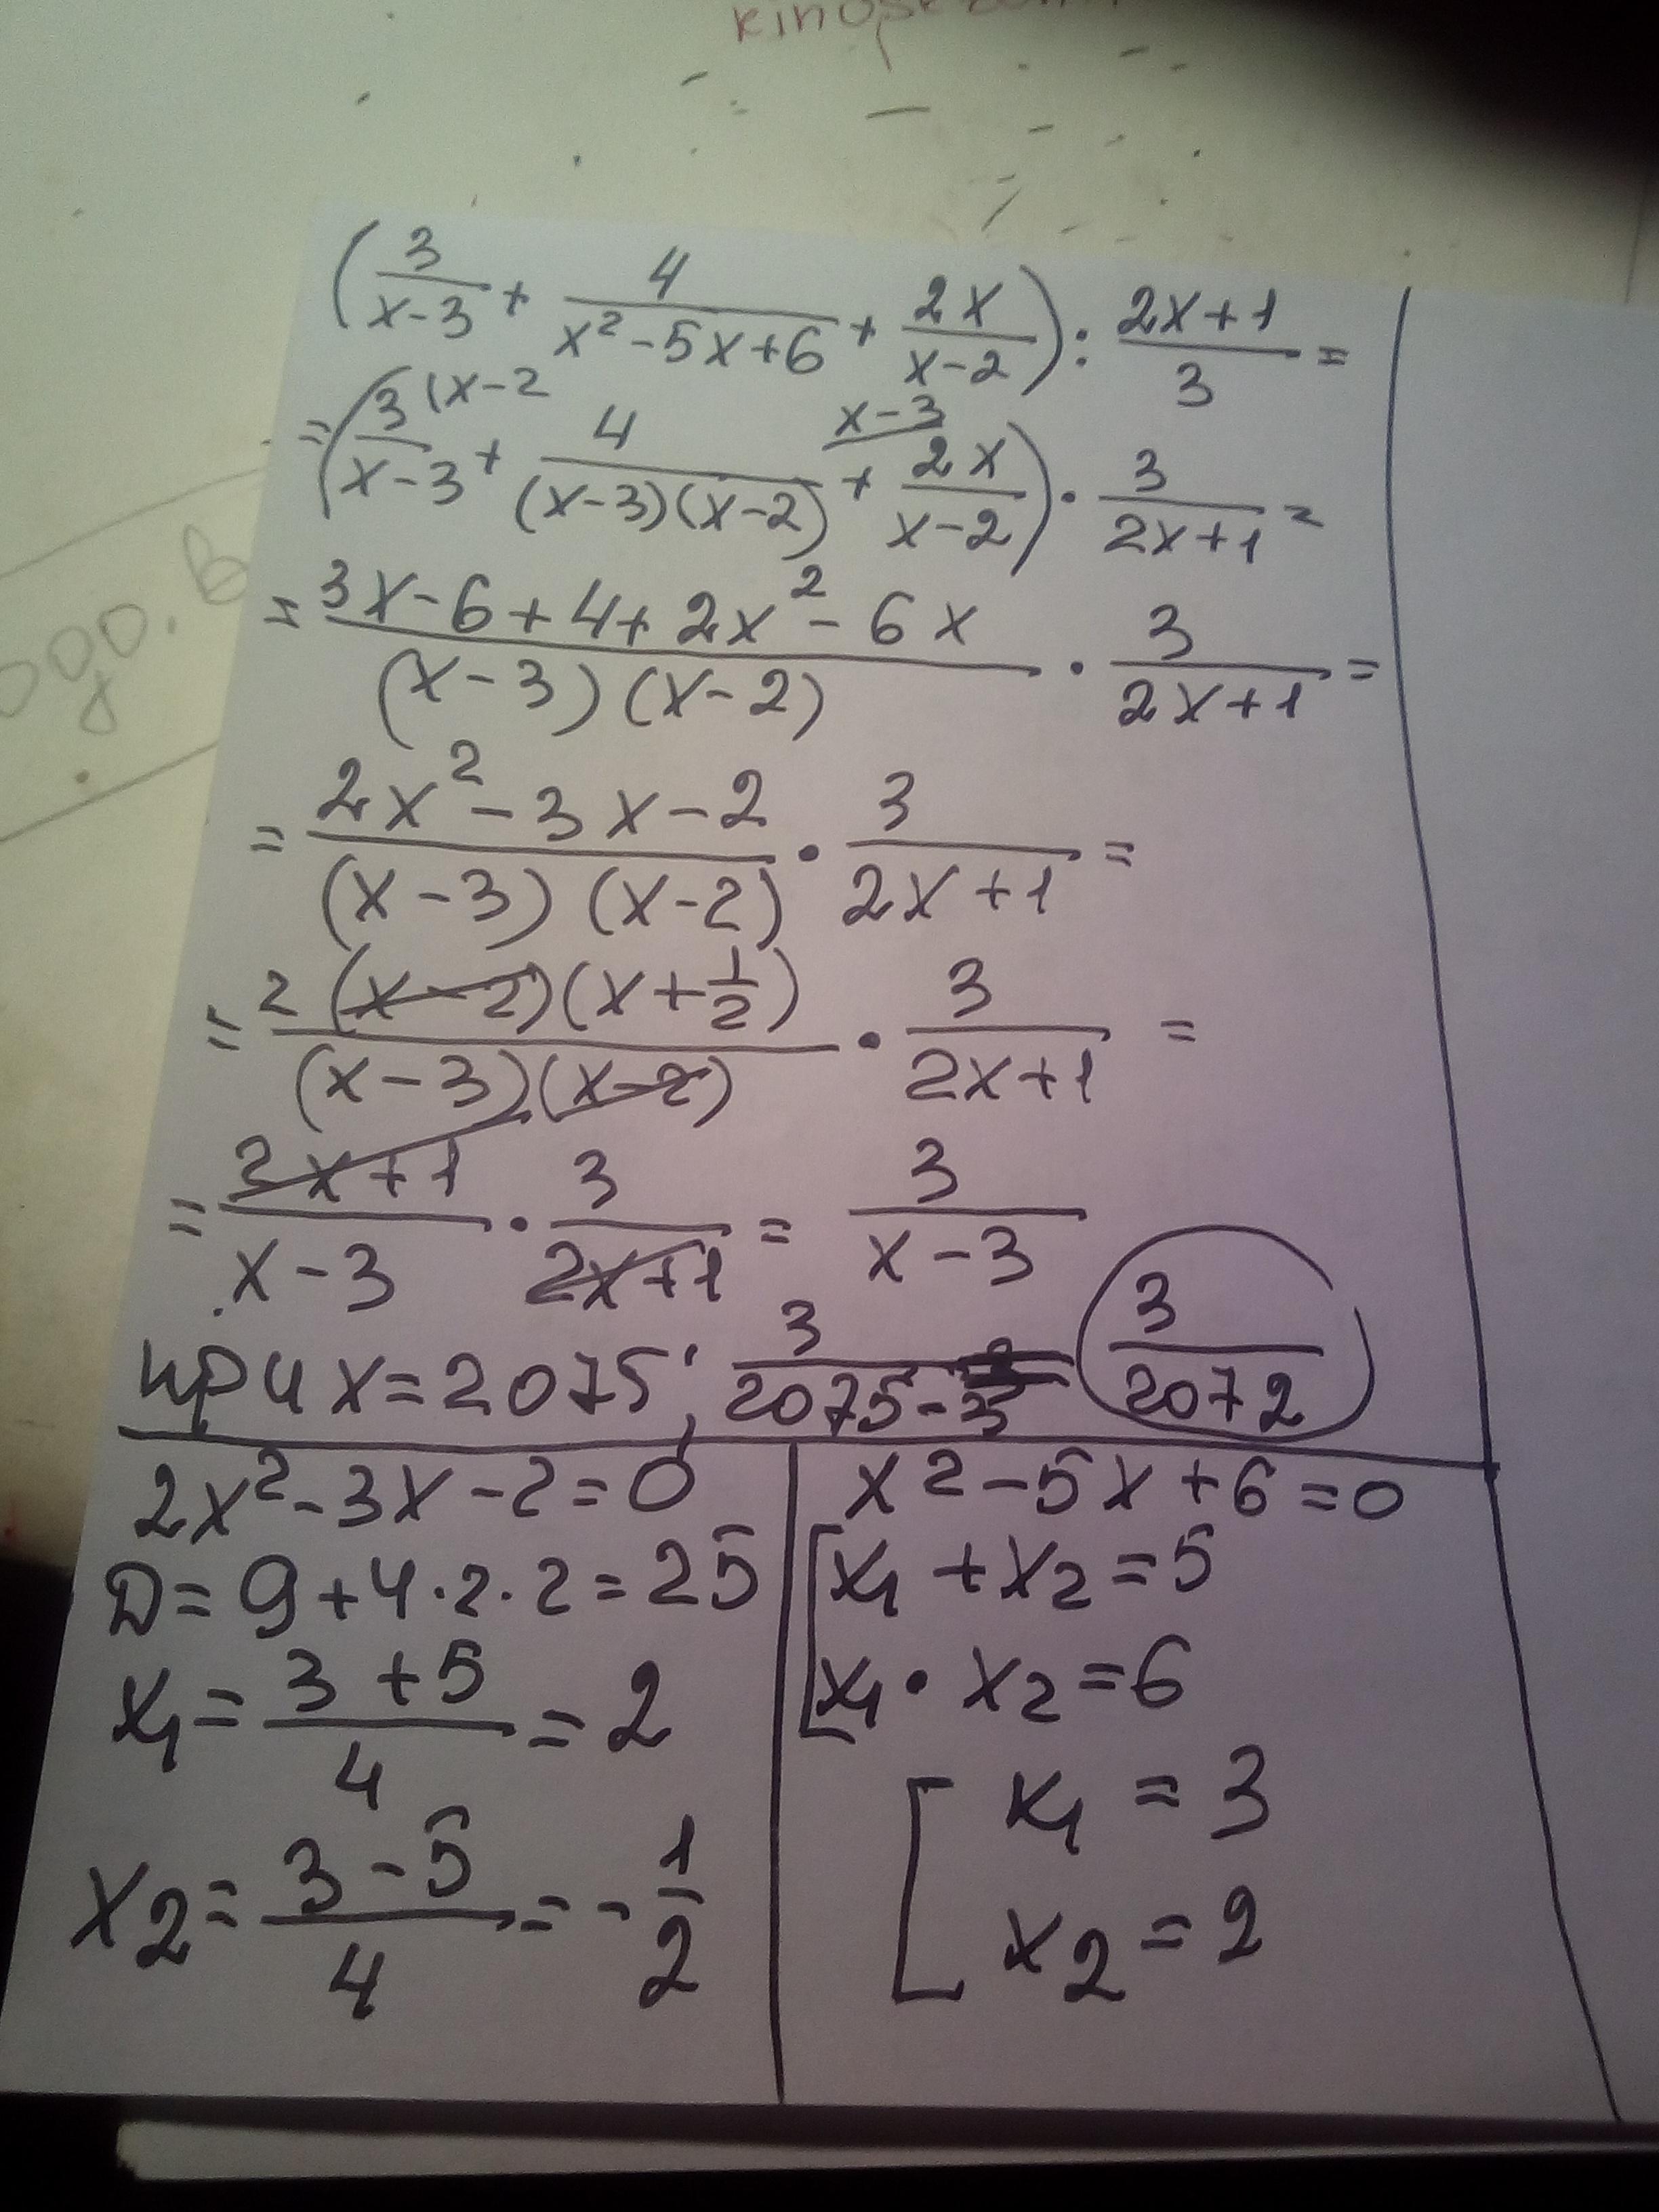 (3/(x-3) + 4/(x²-5x+6) + 2x/(x-2)) : (2x+1)/3 =
= (3(x-2/(x-3) + 4/((x-3)(x-2)) + x-3 2x/(x-2)) · 3/(2x+1) =
= (3x-6+4+2x²-6x)/((x-3)(x-2)) · 3/(2x+1) =
= (2x²-3x-2)/((x-3)(x-2)) · 3/(2x+1) =
= 2(x-2)(x+1/2)/((x-3)(x-2)) · 3/(2x+1) =
= (2x+1)/(x-3) · 3/(2x+1) = 3/(x-3)
при x=2075; 3/(2075-3) = 3/2072
2x²-3x-2=0
D=9+4·2·2=25
x₁=(3+5)/4=2
x₂=(3-5)/4=-1/2
x²-5x+6=0
[x₁+x₂=5
x₁·x₂=6
[x₁=3
x₂=2